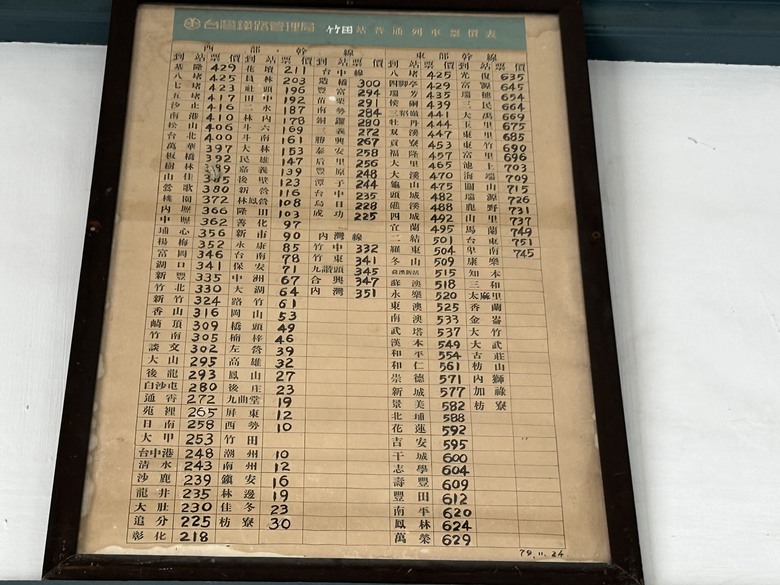 台灣鐵路管理局 竹田站普通列車票價表
西部幹線
到站 票價
基隆 429
八堵 425
七堵 423
五堵 417
汐止 416
南港 410
松山 406
台北 400
萬華 397
板橋 392
樹林 389
山佳 385
鶯歌 380
桃園 372
內壢 366
中壢 362
埔心 356
楊梅 352
富岡 346
湖口 341
新豐 335
竹北 330
新竹 324
香山 316
崎頂 309
竹南 305
談文 302
大山 295
後龍 293
白沙屯 280
通霄 272
苑裡 265
日南 258
大甲 253
台中港 248
清水 243
沙鹿 239
龍井 235
大肚 230
追分 225
彰化 218
到站 票價
花壇 211
員林 203
社頭 196
田中 192
二水 187
林內 178
斗六 169
斗南 161
大林 153
民雄 147
嘉義 139
後壁 123
新營 116
林鳳營 108
隆田 103
善化 97
新市 90
永康 85
台南 78
保安 71
中洲 67
大湖 64
路竹 61
岡山 53
橋頭 49
楠梓 46
左營 39
高雄 32
鳳山 27
後庄 23
九曲堂 19
屏東 12
西勢 10
竹田
潮州 10
南州 12
鎮安 16
林邊 19
佳冬 23
枋寮 30
到站 票價
台中線
造橋 300
豐富 294
苗栗 291
南勢 284
銅鑼 280
三義 272
勝興 267
泰安 258
后里 256
豐原 248
潭子 244
台中 235
烏日 228
成功 225
內灣線
竹中 332
竹東 341
九讚頭 345
合興 347
內灣 351
東部幹線
到站 票價
八堵 425
四腳亭 429
瑞芳 435
侯硐 439
三貂嶺 441
牡丹 444
雙溪 447
貢寮 453
福隆 457
大里 465
大溪 470
龜山 475
頭城 482
礁溪 488
四城 492
宜蘭 495
二結 501
羅東 504
冬山 509
蘇澳新站 515
蘇澳 518
永樂 520
東澳 525
南澳 533
武塔 537
漢本 549
和平 554
和仁 561
崇德 571
新城 577
景美 582
北埔 588
花蓮 592
吉安 595
干城 600
志學 604
壽豐 609
豐田 612
南平 620
鳳林 624
萬榮 629
到站 票價
光復 635
富源 645
瑞穗 654
三民 664
大禹 669
玉里 675
東里 685
東竹 690
富里 696
池上 703
海端 709
關山 715
瑞源 726
鹿野 731
山里 737
馬蘭 749
台東 751
卑南 745
康樂
知本
三和
太麻里
香蘭
金崙
大竹
大武
古莊
枋山
內獅
加祿
枋寮
79.11.24